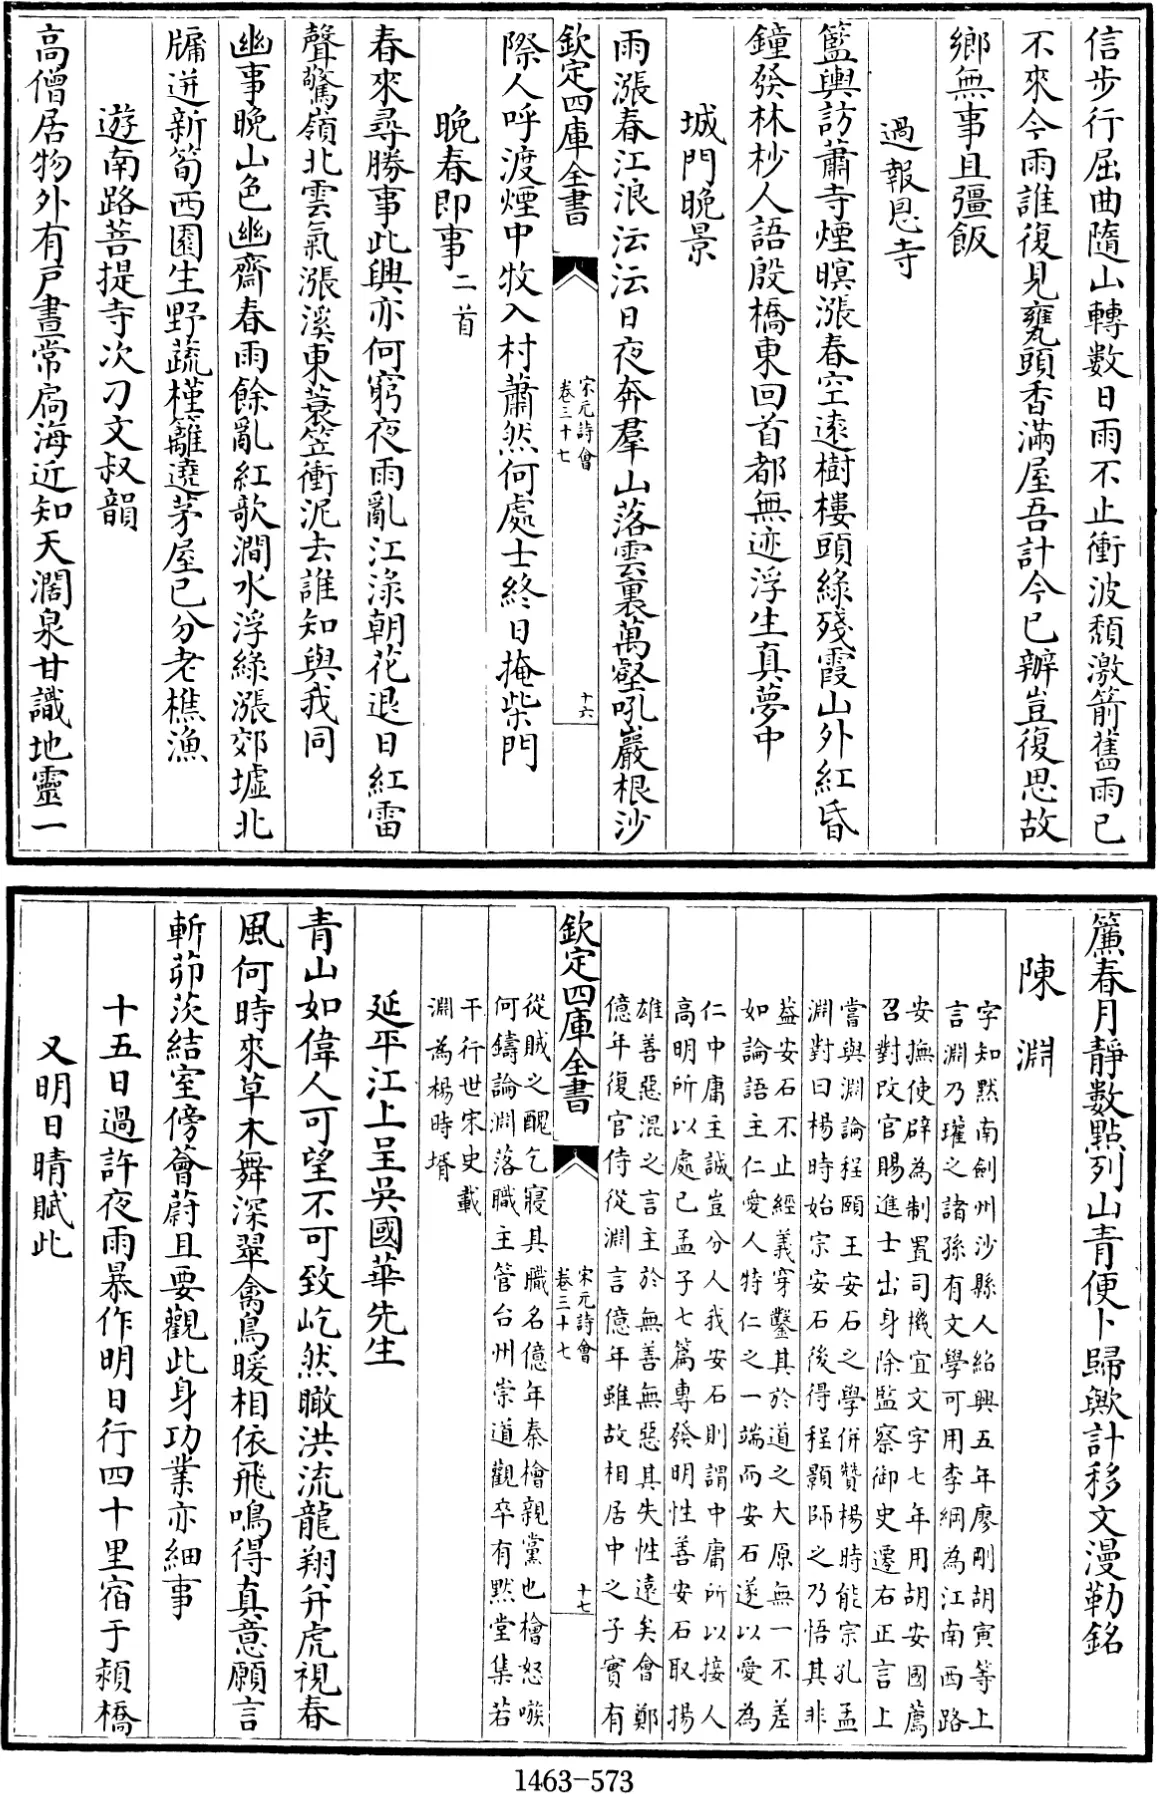 信步行屈曲隨山轉數日雨不止衝波頹激箭舊雨已
不來今雨誰復見甕頭香滿屋吾計今已辦豈復思故
鄉無事且彊飯
過報恩寺
籃輿訪蕭寺煙暝漲春空遠樹樓頭綠殘霞山外紅昏
鐘發林杪人語殷橋東回首都無迹浮生真夢中
城門晚景
雨漲春江浪沄沄日夜奔羣山落雲裏萬壑吼巖根沙
欽定四庫全書
宋元詩會
卷三十七
十六
際人呼渡煙中牧入村蕭然何處士終日掩柴門
晚春即事二首
春來尋勝事此興亦何窮夜雨亂江淥朝花退日紅雷
聲驚嶺北雲氣漲溪東蓑笠衝泥去誰知與我同
幽事晚山色幽齋春雨餘亂紅歌澗水浮綠漲郊墟北
牖迸新筍西園生野蔬槿籬遶茅屋已分老樵漁
遊南路菩提寺次刁文叔韻
高僧居物外有戸晝常扃海近知天濶泉甘識地靈一
簾春月靜數點列山青便卜歸歟計移文漫勒銘
陳淵
字知黙南劍州沙縣人紹興五年廖剛胡寅等上
言淵乃瓘之諸孫有文學可用李綱為江南西路
安撫使辟為制置司機宜文字七年用胡安國薦
召對改官賜進士出身除監察御史遷右正言上
嘗與淵論程頤王安石之學併贊楊時能宗孔孟
淵對曰楊時始宗安石後得程顥師之乃悟其非
葢安石不止經義穿鑿其於道之大原無一不差
如論語主仁愛人特仁之一端而安石遂以愛為
仁中庸主誠豈分人我安石則謂中庸所以接人
高明所以處己孟子七篇專發明性善安石取揚
雄善惡混之言主於無善無惡其失性遠矣會鄭
億年復官侍從淵言億年雖故相居中之子實有
欽定四庫全書
宋元詩會
卷三十七
十七
從賊之醜乞寢其職名億年秦檜親黨也檜怒嗾
何鑄論淵落職主管台州崇道觀卒有黙堂集若
干行世宋史載
淵為楊時壻
延平江上呈吳國華先生
青山如偉人可望不可致屹然瞰洪流龍翔并虎視春
風何時來草木舞深翠禽鳥暖相依飛鳴得真意願言
斬茆茨結室傍薈蔚且要觀此身功業亦細事
十五日過許夜雨暴作明日行四十里宿于潁橋
又明日晴賦此
1463-573